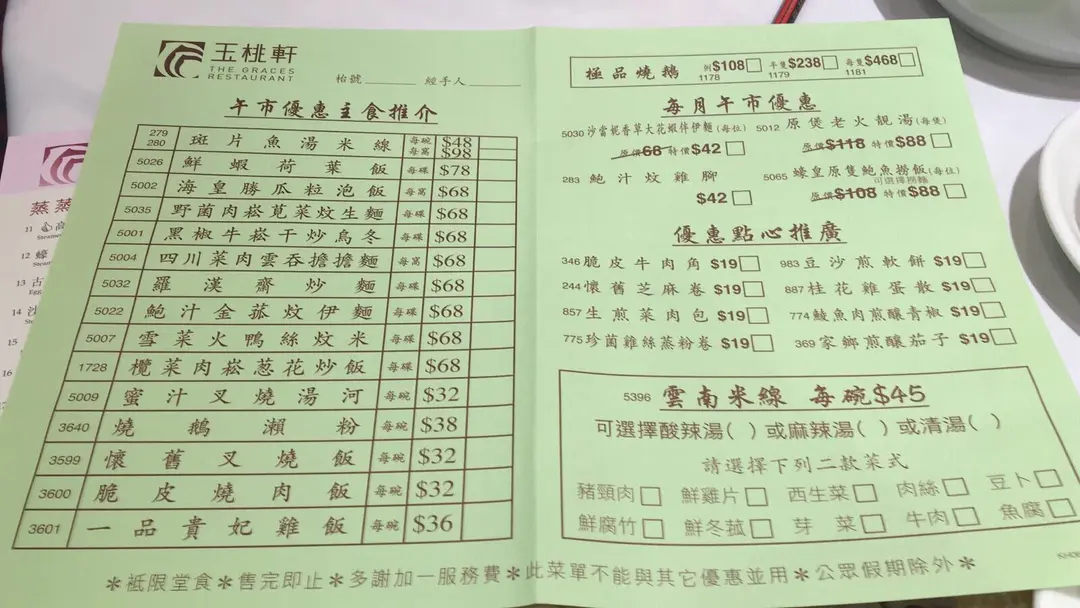 玉桃軒
THE GRACES
RESTAURANT
枱號______ 經手人______
午市優惠主食推介
279 280 斑片魚湯米線 每碗 $48 每窩 $98
5026 鮮蝦荷葉飯 每碟 $78
5002 海皇勝瓜粒泡飯 每窩 $68
5035 野菌肉崧莧菜炆生麵 每碟 $68
5001 黑椒牛崧干炒烏冬 每碟 $68
5004 四川菜肉雲吞擔擔麵 每窩 $68
5032 羅漢齋炒麵 每碟 $68
5022 鮑汁金菰炆伊麵 每碟 $68
5007 雪菜火鴨絲炆米 每碟 $68
1728 欖菜肉崧葱花炒飯 每碟 $68
5009 蜜汁叉燒湯河 每碗 $32
3640 燒鵝瀨粉 每碗 $38
3599 懷舊叉燒飯 每碗 $32
3600 脆皮燒肉飯 每碗 $32
3601 一品貴妃雞飯 每碗 $36
極品燒鵝 例$108 1178 半隻$238 1179 每隻$468 1181
每月午市優惠
5030 沙當妮香草大花蝦伴伊麵(每位) 5012 原煲老火靚湯(每煲)
原價68 特價$42 原價$118 特價$88
283 鮑汁炆雞腳 5065 蠔皇原隻鮑魚撈飯(每位)
可選擇撈麵
$42 原價$108 特價$88
優惠點心推廣
346 脆皮牛肉角 $19 983 豆沙煎軟餅 $19
244 懷舊芝麻卷 $19 887 桂花雞蛋散 $19
857 生煎菜肉包 $19 774 鯪魚肉煎釀青椒 $19
775 珍菌雞絲蒸粉卷 $19 369 家鄉煎釀茄子 $19
5396 雲南米線 每碗$45
可選擇酸辣湯( )或麻辣湯( )或清湯( )
請選擇下列二款菜式
豬頸肉 鮮雞片 西生菜 肉絲 豆卜
鮮腐竹 鮮冬菰 芽菜 牛肉 魚腐
＊祗限堂食＊售完即止＊多謝加一服務費＊此菜單不能與其它優惠並用＊公眾假期除外＊
蒸蒸
11
12 蠔
13 古
14
15
16